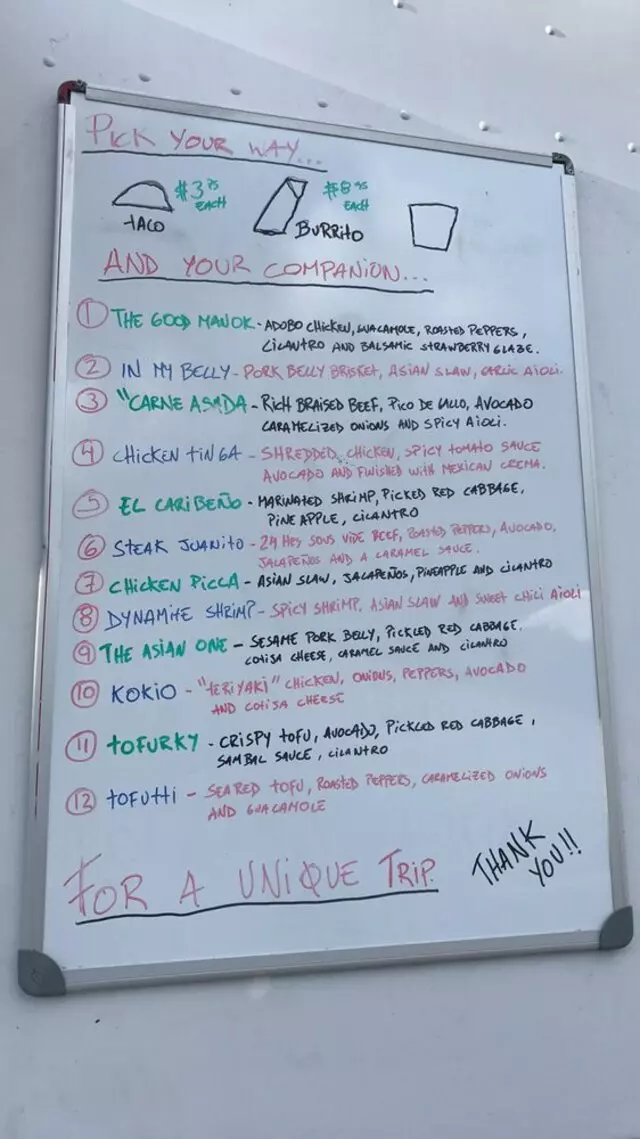 PICK YOUR WAY...
$3 75 EACH $8 95 EACH
TACO BURRITO
AND YOUR COMPANION...
1 THE GOOD MANOK - ADOBO CHICKEN, GUACAMOLE, ROASTED PEPPERS,
CILANTRO AND BALSAMIC STRAWBERRY GLAZE.
2 IN MY BELLY - PORK BELLY BRISKET, ASIAN SLAW, GARLIC AIOLI.
3 "CARNE ASADA - RICH BRAISED BEEF, PICO DE GALLO, AVOCADO
CARAMELIZED ONIONS AND SPICY AIOLI.
4 CHICKEN TINGA - SHREDDED CHICKEN, SPICY TOMATO SAUCE
AVOCADO AND FINISHED WITH MEXICAN CREMA.
5 EL CARIBEÑO - MARINATED SHRIMP, PICKED RED CABBAGE,
PINEAPPLE, CILANTRO
6 STEAK JUANITO - 24 HRS SOUS VIDE BEEF, ROASTED PEPPERS, AVOCADO,
JALAPEÑOS AND A CARAMEL SAUCE.
7 CHICKEN PICCA - ASIAN SLAW, JALAPEÑOS, PINEAPPLE AND CILANTRO
8 DYNAMITE SHRIMP - SPICY SHRIMP, ASIAN SLAW AND SWEET CHILI AIOLI
9 THE ASIAN ONE - SESAME PORK BELLY, PICKLED RED CABBAGE,
COTIJA CHEESE, CARAMEL SAUCE AND CILANTRO
10 KOKIO - "TERIYAKI" CHICKEN, ONIONS, PEPPERS, AVOCADO
AND COTIJA CHEESE
11 TOFURKY - CRISPY TOFU, AVOCADO, PICKLED RED CABBAGE,
SAMBAL SAUCE, CILANTRO
12 TOFUTTI - SEARED TOFU, ROASTED PEPPERS, CARAMELIZED ONIONS
AND GUACAMOLE
FOR A UNIQUE TRIP.
THANK
YOU!!